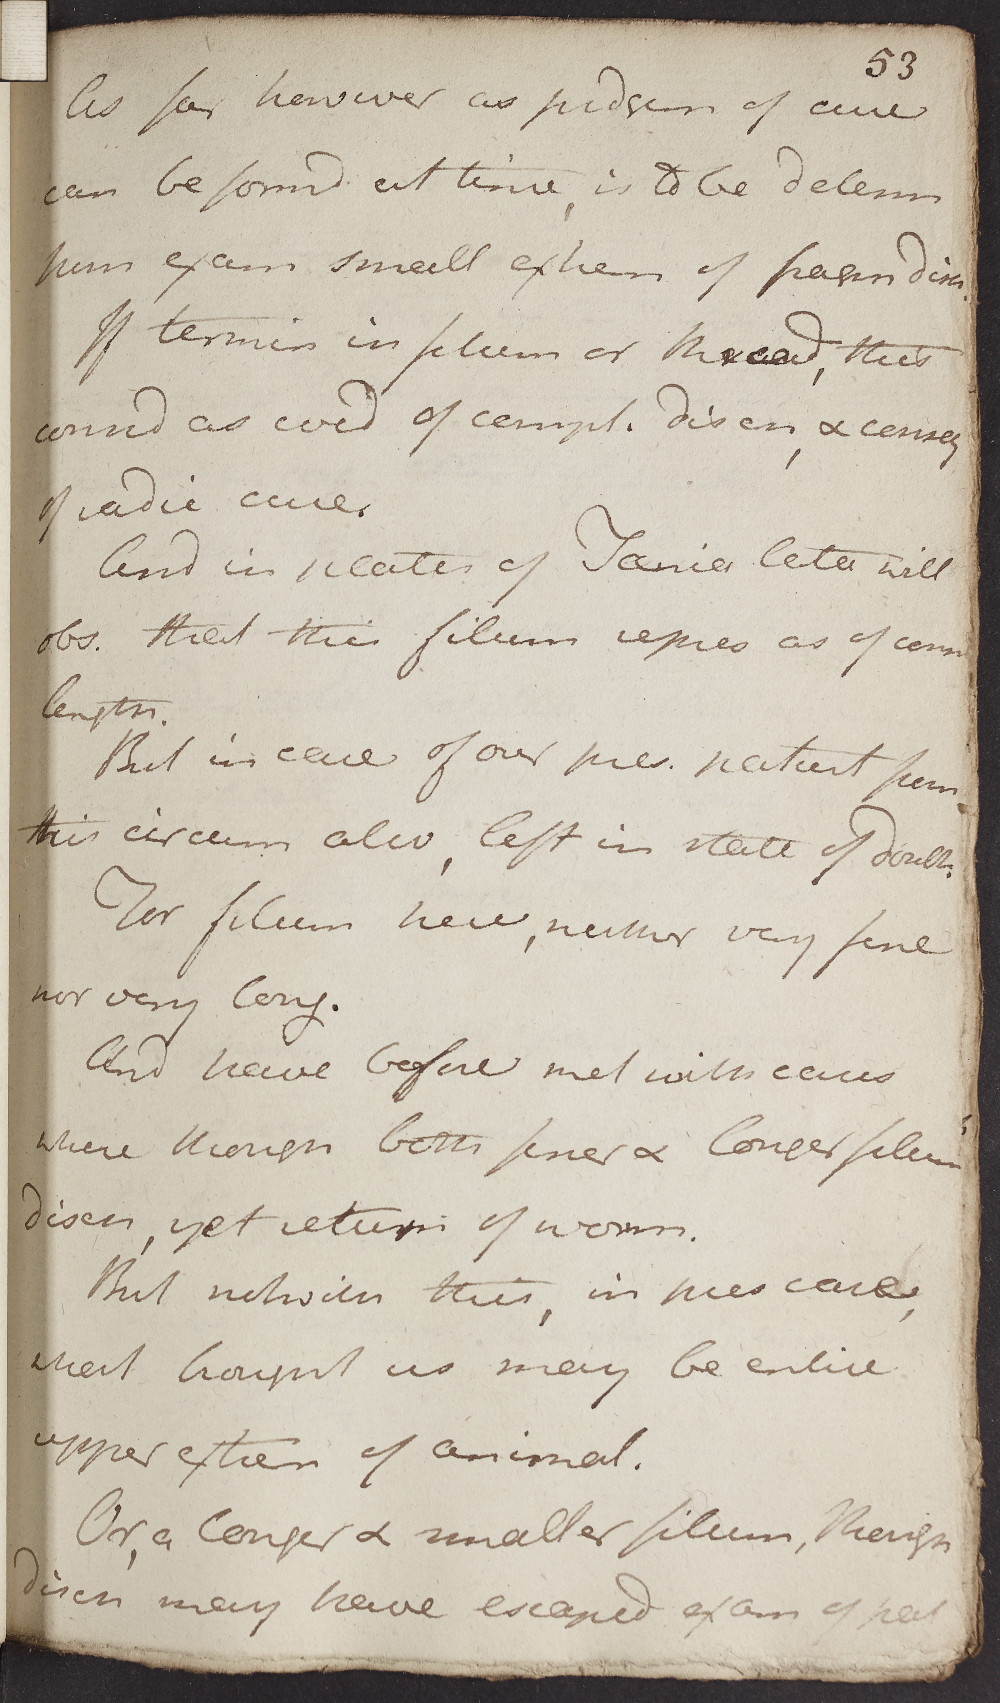 53
As far however as judgem of cure
can be formd at time, is to be determ
from exam small extrem of fragm disch.
If termin in filum or thread, this
considd as evid of compl. disch, & conseq
of radic cure.
And in plates of Tænia lata will
obs. that this filum repres as of consid
length.
But in case of our pres. patient from
this circum also, left in state of doubt.
For filum here, neither very fine
nor very long.
And have before met with cases
where though both finer & longer filum
disch, yet return of worm.
But notwith this, in pres case,
what brought us may be entire
upper extrem of animal.
Or, a longer & smaller filum, though
disch may have escaped exam of pat